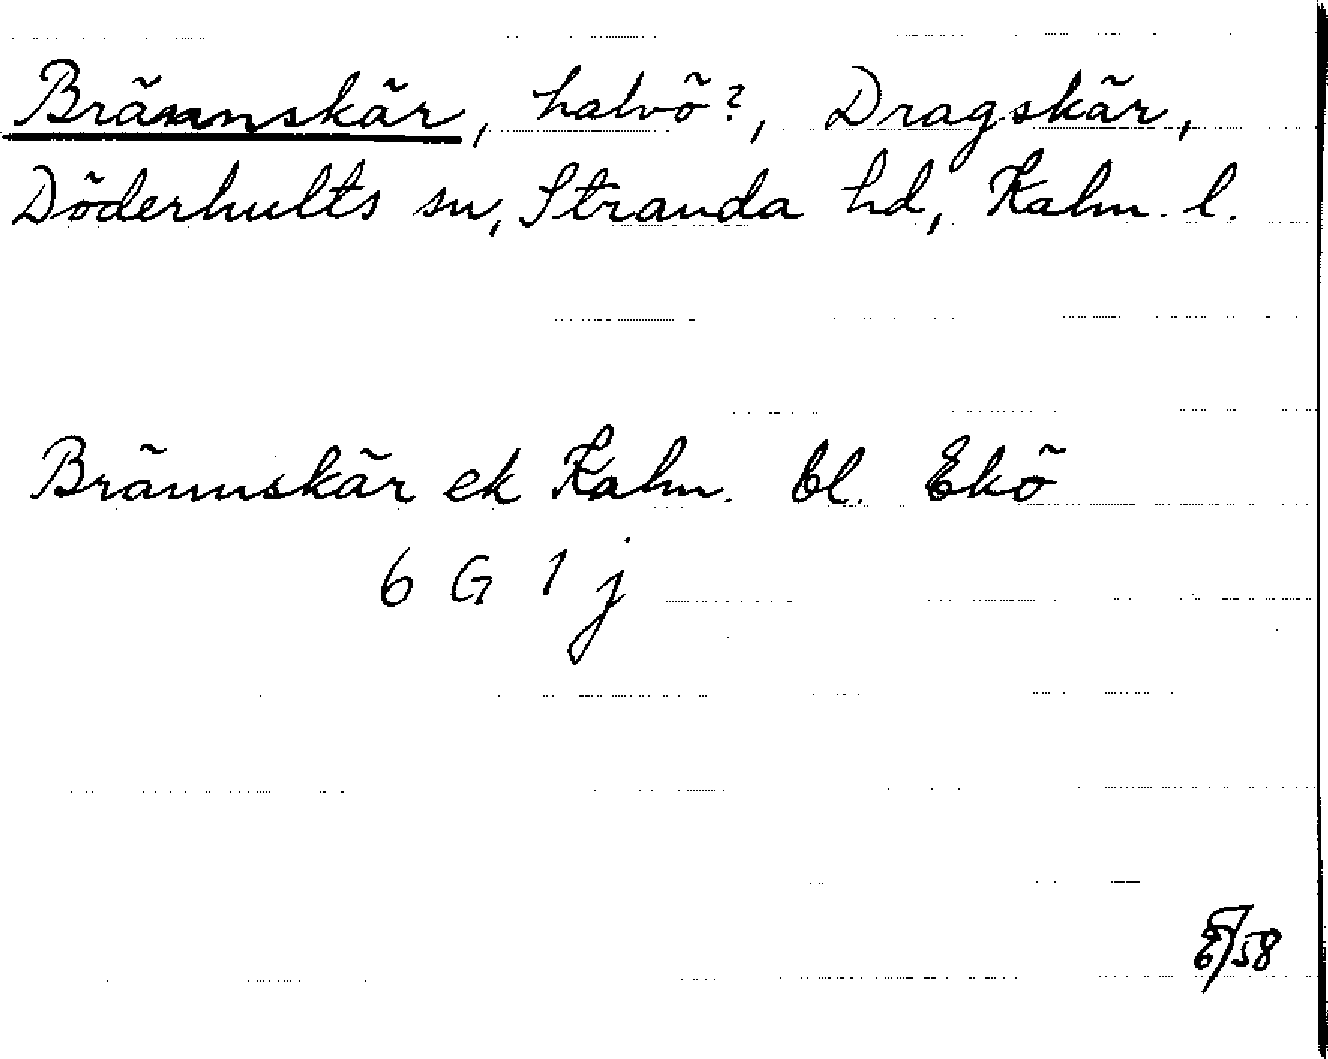 Brännskär, halvö?, Dragskär,
Döderhults sn, Stranda hd, Kalm. l.
Brännskär ek Kalm. bl. Ekö
6 G 1 j
58